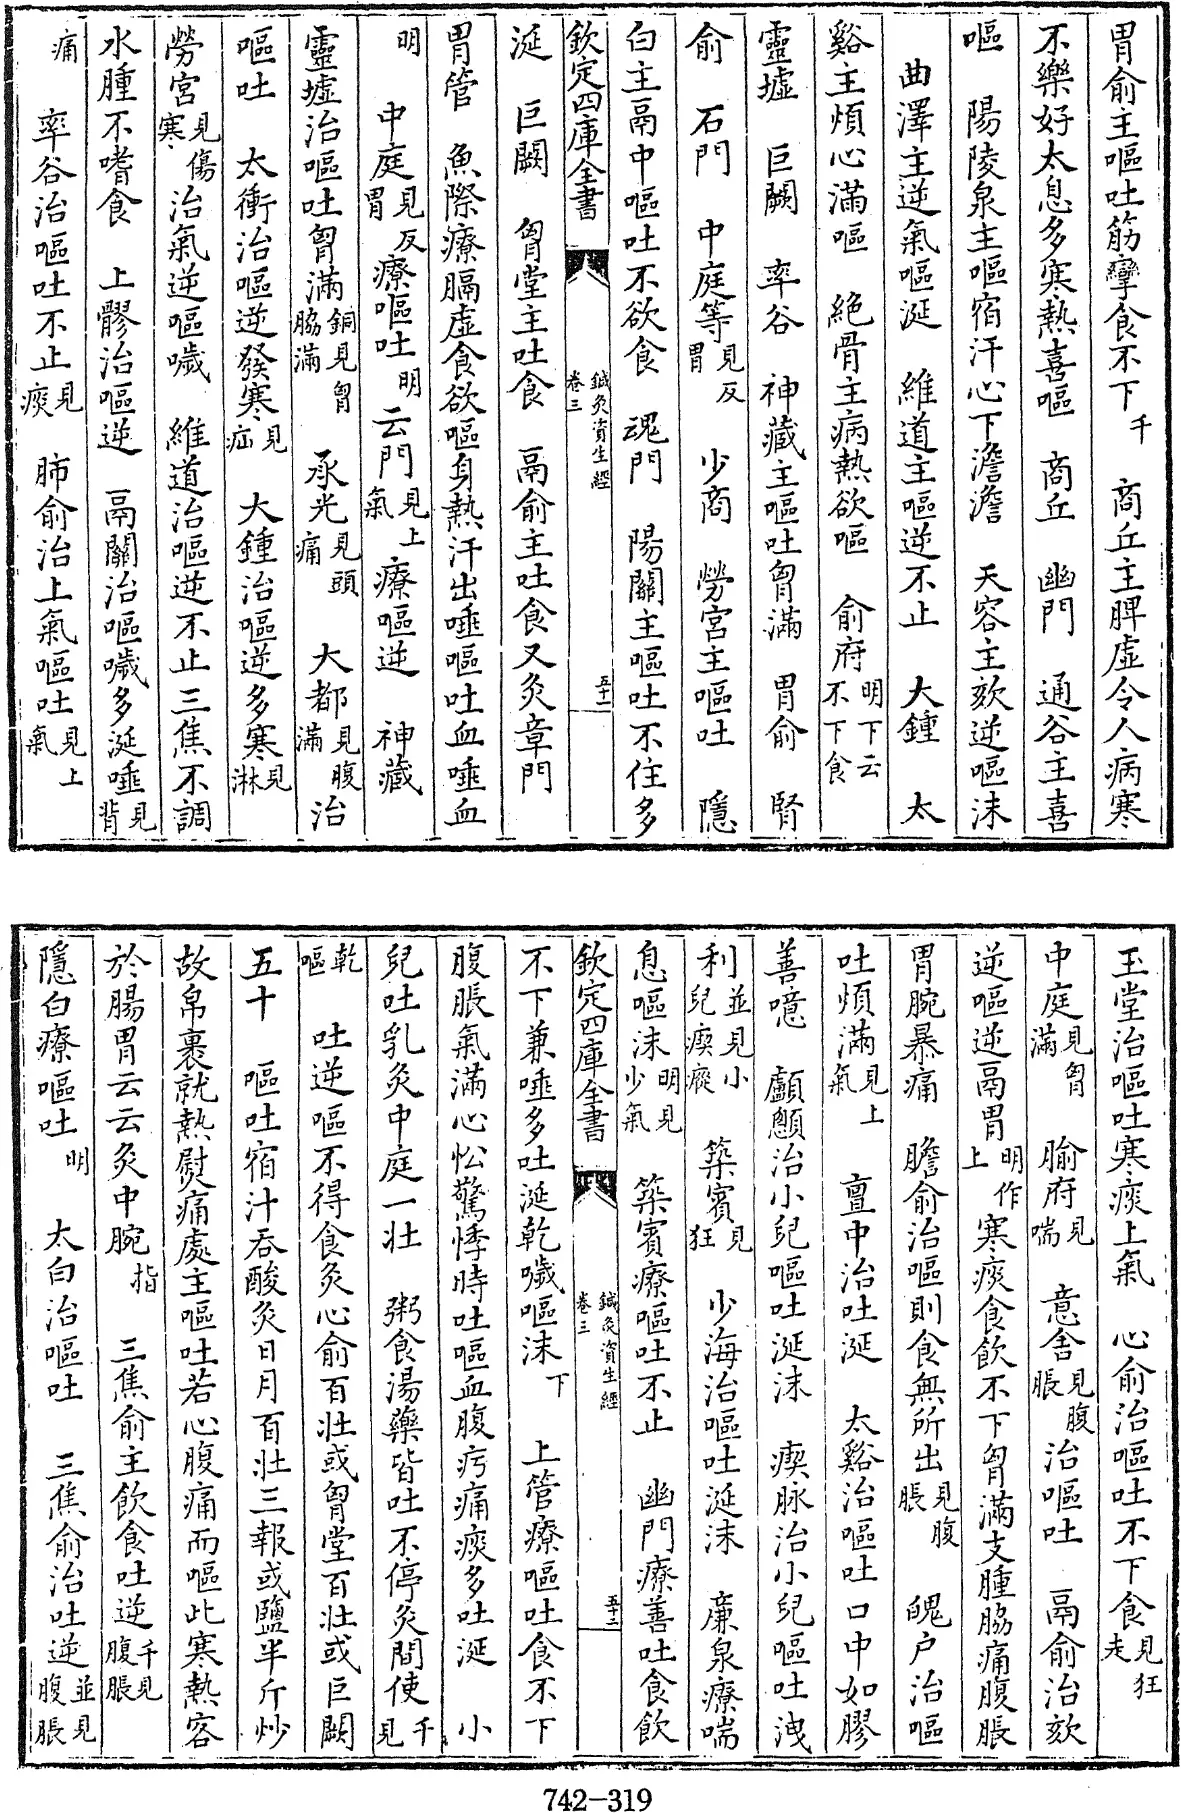 胃俞主嘔吐筋攣食不下千　商丘主脾虛令人病寒
不樂好太息多寒熱喜嘔　商丘　幽門　通谷主喜
嘔　陽陵泉主嘔宿汗心下澹澹　天容主欬逆嘔沫
曲澤主逆氣嘔涎　維道主嘔逆不止　大鍾　太
谿主煩心滿嘔　絶骨主病熱欲嘔　俞府明下云不下食
靈墟　巨闕　率谷　神藏主嘔吐胷滿　胃俞　腎
俞　石門　中庭等見反胃　少商　勞宮主嘔吐　隱
白主鬲中嘔吐不欲食　魂門　陽關主嘔吐不住多
欽定四庫全書　鍼灸資生經卷三　五十一
涎　巨闕　胷堂主吐食　鬲俞主吐食又灸章門
胃管　魚際療膈虛食欲嘔身熱汗出唾嘔吐血唾血
明　中庭見反胃療嘔吐明云門見上氣療嘔逆　神藏
靈墟治嘔吐胷滿銅見胷脇滿　承光見頭痛　大都見腹滿治
嘔吐　太衝治嘔逆發寒見疝　大鍾治嘔逆多寒見淋
勞宮見傷寒治氣逆嘔噦　維道治嘔逆不止三焦不調
水腫不嗜食　上髎治嘔逆　鬲關治嘔噦多涎唾見背
痛　率谷治嘔吐不止見痰　肺俞治上氣嘔吐見上氣
玉堂治嘔吐寒痰上氣　心俞治嘔吐不下食見狂走
中庭見胷滿　腧府見喘　意舍見腹脹治嘔吐　鬲俞治欬
逆嘔逆鬲胃明作上寒痰食飲不下胷滿支腫脇痛腹脹
胃脘暴痛　膽俞治嘔則食無所出見腹脹　魄户治嘔
吐煩滿見上氣　亶中治吐涎　太谿治嘔吐口中如膠
善噫　顱顖治小兒嘔吐涎沫　瘈脉治小兒嘔吐洩
利並見小兒瘈瘲　築賓見狂　少海治嘔吐涎沫　廉泉療喘
息嘔沫明見少氣　築賓療嘔吐不止　幽門療善吐食飲
欽定四庫全書　鍼灸資生經卷三　五十二
不下兼唾多吐涎乾噦嘔沫下　上管療嘔吐食不下
腹脹氣滿心忪驚悸時吐嘔血腹㽲痛痰多吐涎　小
兒吐乳灸中庭一壯　粥食湯藥皆吐不停灸間使千見
乾嘔　吐逆嘔不得食灸心俞百壯或胷堂百壯或巨闕
五十　嘔吐宿汁吞酸灸日月百壯三報或鹽半斤炒
故帛裹就熱熨痛處主嘔吐若心腹痛而嘔此寒熱客
於腸胃云云灸中脘指　三焦俞主飲食吐逆千見腹脹
隱白療嘔吐明　太白治嘔吐　三焦俞治吐逆並見腹脹
742-319